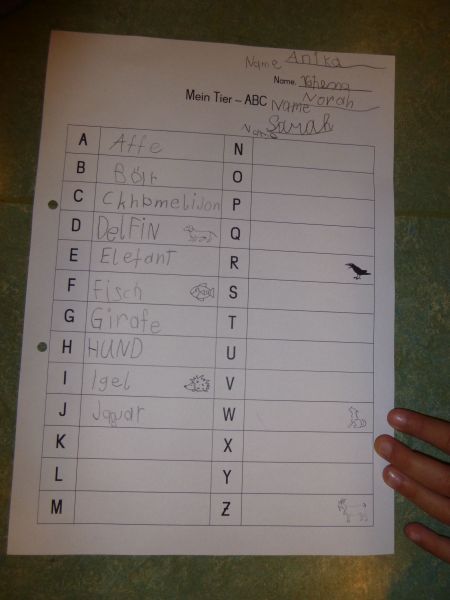 Name Anika
Name.
Mein Tier – ABC
Norah
Name
Sarah
Name
A Affe N
B Bär O
C Ckhbmelijon P
D DelFiN Q
E Elefant R
F Fisch S
G Girafe T
H HUND U
I Igel V
J Jaguar W
K X
L Y
M Z